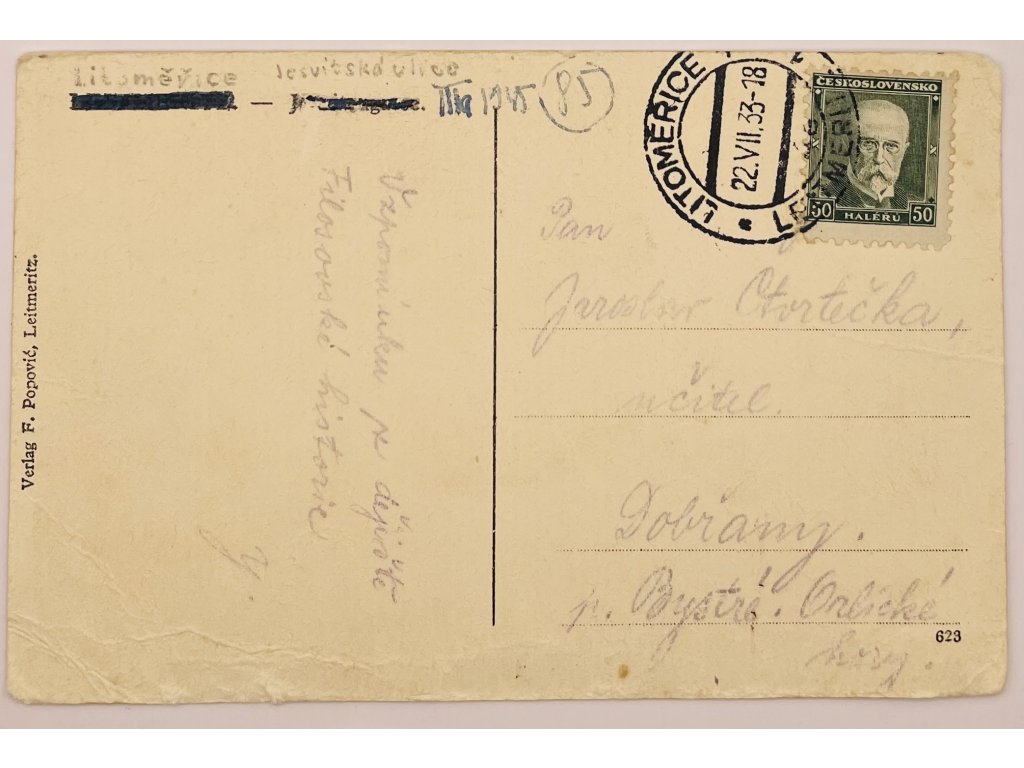 Litoměřice Jesuitská ulice
IIIa 1945 85
Vzpomínku ze dějiště
Filosovské historie
Y.
Verlag F. Popović, Leitmeritz.
LITOMĚŘICE
22.VII.33-18
ČESKOSLOVENSKO
50 HALÉŘŮ 50
Pan
Jaroslav Čtvrtečka,
učitel.
Dobřany.
p. Bystré. Orlické
hory.
623